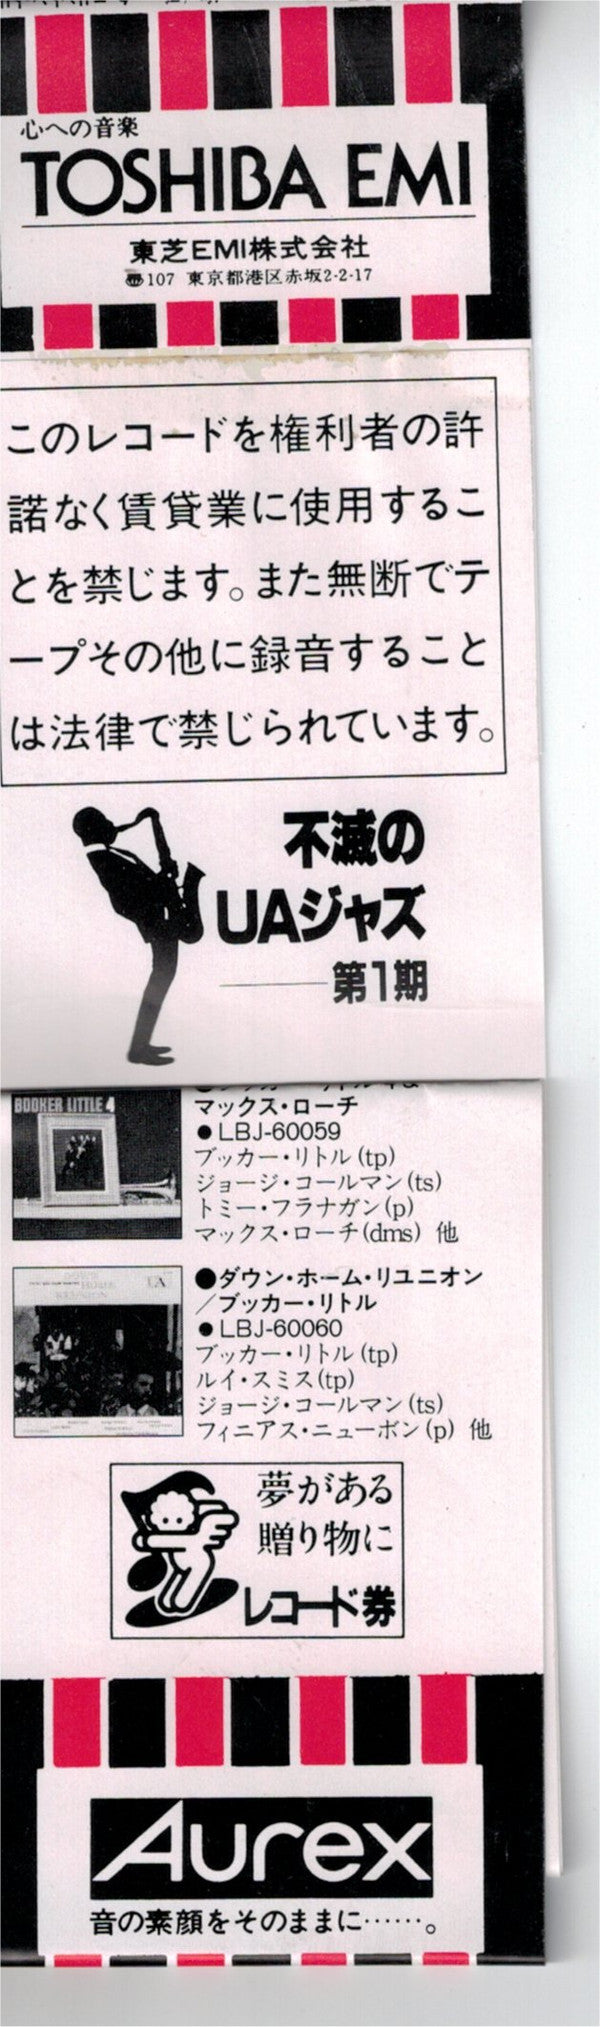 心への音楽
TOSHIBA EMI
東芝EMI株式会社
〠107 東京都港区赤坂2-2-17
このレコードを権利者の許
諾なく賃貸業に使用するこ
とを禁じます。また無断でテ
ープその他に録音すること
は法律で禁じられています。
不滅の
UAジャズ
第1期
BOOKER LITTLE 4
マックス・ローチ
●LBJ-60059
ブッカー・リトル(tp)
ジョージ・コールマン(ts)
トミー・フラナガン(p)
マックス・ローチ(dms) 他
●ダウン・ホーム・リユニオン
/ブッカー・リトル
●LBJ-60060
ブッカー・リトル(tp)
ルイ・スミス(tp)
ジョージ・コールマン(ts)
フィニアス・ニューボン(p) 他
夢がある
贈り物に
レコード券
Aurex
音の素顔をそのままに……。